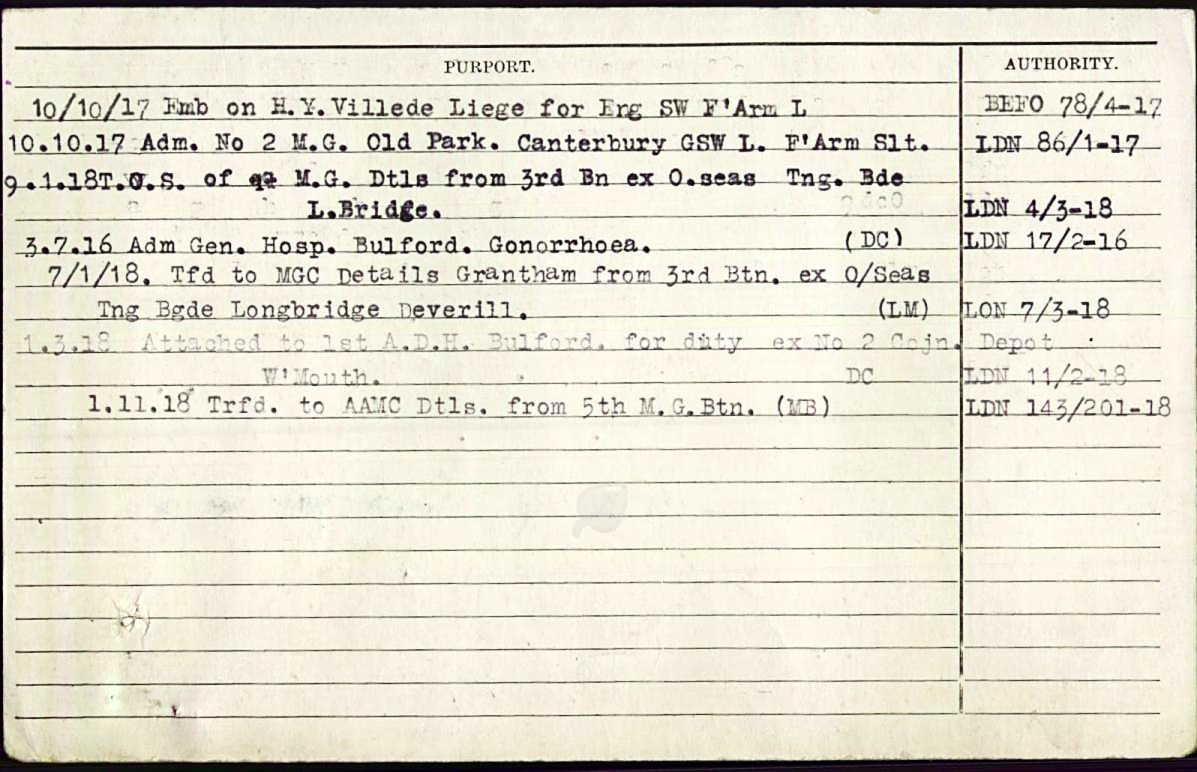 PURPORT. AUTHORITY.
10/10/17 Emb on H.Y.Villede Liege for Eng SW F'Arm L BEFO 78/4-17
10.10.17 Adm. No 2 M.G. Old Park. Canterbury GSW L. F'Arm Slt. LDN 86/1-17
9.1.18T.O.S. of M.G. Dtls from 3rd Bn ex O.seas Tng. Bde
L.Bridge. LDN 4/3-18
3.7.16 Adm Gen. Hosp. Bulford. Gonorrhoea. (DC) LDN 17/2-16
7/1/18. Tfd to MGC Details Grantham from 3rd Btn. ex O/Seas
Tng Bgde Longbridge Deverill. (LM) LON 7/3-18
1.3.18 Attached to 1st A.D.H. Bulford. for duty ex No 2 Depot
W'Mouth. DC LDN 11/2-18
1.11.18 Trfd. to AAMC Dtls. from 5th M.G.Btn. (MB) LDN 143/201-18